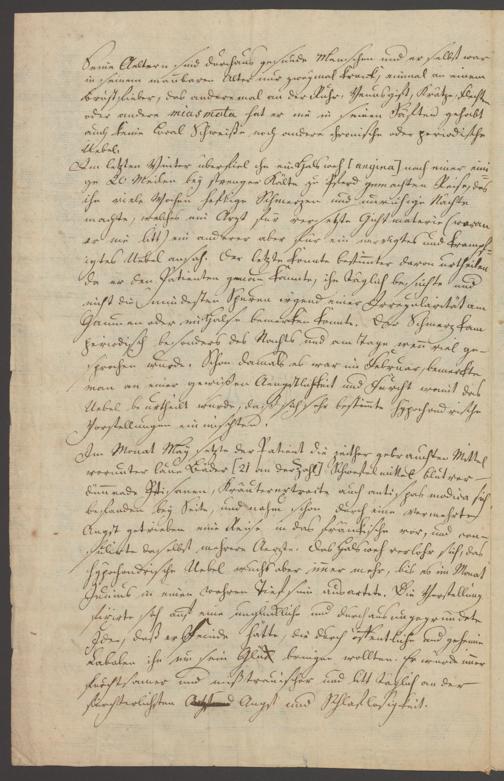 Seine Aeltern sind durchaus gesunde Menschen und er selbst war
in seinem mannbaren Alter nur zweymal krank, einmal an einem
Brustfieber, das anderemal an der Ruhr. Venusgift, Krätze, Flechten
oder andere miasmata hat er nie in seinen Säften gehabt
auch keine local Schweiße, noch andere chronische oder periodische
Uebel.
Im letzten Winter überfiel ihn ein Halsweh [angina] nach einer eini
ge 20 Meilen bey strenger Kälte zu Pferd gemachten Reise, das
ihm viele Wochen heftige Schmerzen und unruhige Nächte
machte, welches ein Arzt für versetzte Gichtmaterie (woran
er nie litt) ein anderer aber für ein und krampf-
igtes Uebel ansah. Der letzte konnte bestimmter davon urtheilen
da er den Patienten genau kannte, ihn täglich besuchte und
nicht die mindesten Spuren irgend einer Irregularität am
Gaumen oder im Halse bemerken konnte. Der Schmerz kam
periodisch besonders des Nachts und am Tage wenn viel ge-
sprochen wurde. Schon damals es war im Februar, bemerkte
man an einer gewißen Aengstlichkeit und Furcht womit das
Uebel beurtheilt wurde, daß sich sehr bestimmte hypochondrische
Vorstellungen einmischten.
Im Monat May setzte der Patient die zeither gebrauchten Mittel
worunter laue Bäder [21 an der Zahl] Schwefelmittel blutver-
dünnende Ptisanen, Kräuterextracte auch antispasmodica sich
befanden bey Seite, und nahm schon durch eine vermehrte
Angst getrieben eine Reise in das Fränkische vor, und con-
sulirte daselbst mehrere Aerzte. Das Halsweh verlohr sich, das
hypochondrische Uebel wuchs aber immer mehr, bis es im Monat
Junius in einen wahren Tiefsinn ausartete. Die Vorstellung
fixirte sich auf eine unglückliche und durchaus ungegründete
Idee, daß er Feinde hätte, die durch öffentliche und geheime
Kabalen ihn um sein Glük bringen wollten. Er wurde immer
furchtsamer und mißtrauischer und litt täglich an der
fürchterlichsten Angst und Schlaflosigkeit.